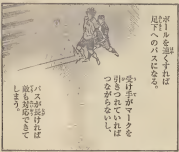 ボールを速くすれば
足下へのパスになる。
受け手がマークを
引きつれていれば
つながらないし、
パスが長ければ
敵も対応できて
しまう。